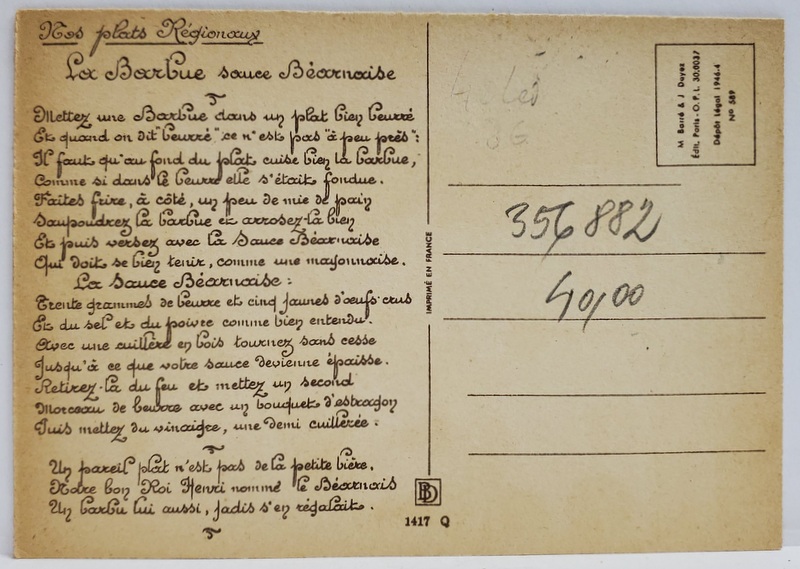 Nos plats Régionaux
La Barbue sauce Béarnaise
Mettez une Barbue dans un plat bien beurré
Et quand on dit "beurré" ce n'est pas "à peu près":
Il faut qu'au fond du plat cuise bien la barbue,
Comme si dans le beurre elle s'était fondue.
Faites frire, à côté, un peu de mie de pain
Saupoudrez la barbue et arrosez-la bien
Et puis versez avec la Sauce Béarnaise
Qui doit se bien tenir, comme une mayonnaise.
La Sauce Béarnaise :
Trente grammes de beurre et cinq jaunes d'œufs crus
Et du sel et du poivre comme bien entendu.
Avec une cuillère en bois tournez sans cesse
Jusqu'à ce que votre sauce devienne épaisse.
Retirez-la du feu et mettez un second
Morceau de beurre avec un bouquet d'estragon
Puis mettez du vinaigre, une demi cuillerée.
Un pareil plat n'est pas de la petite bière.
Notre bon Roi Henri nommé le Béarnais
Un barbu lui aussi, jadis s'en régalait.
IMPRIMÉ EN FRANCE
BD
1417 Q
M Barré & J Dayez
Édit. Paris - O.P.L. 30.0037
Dépôt Légal 1946-4
N° 589
356882
40,00